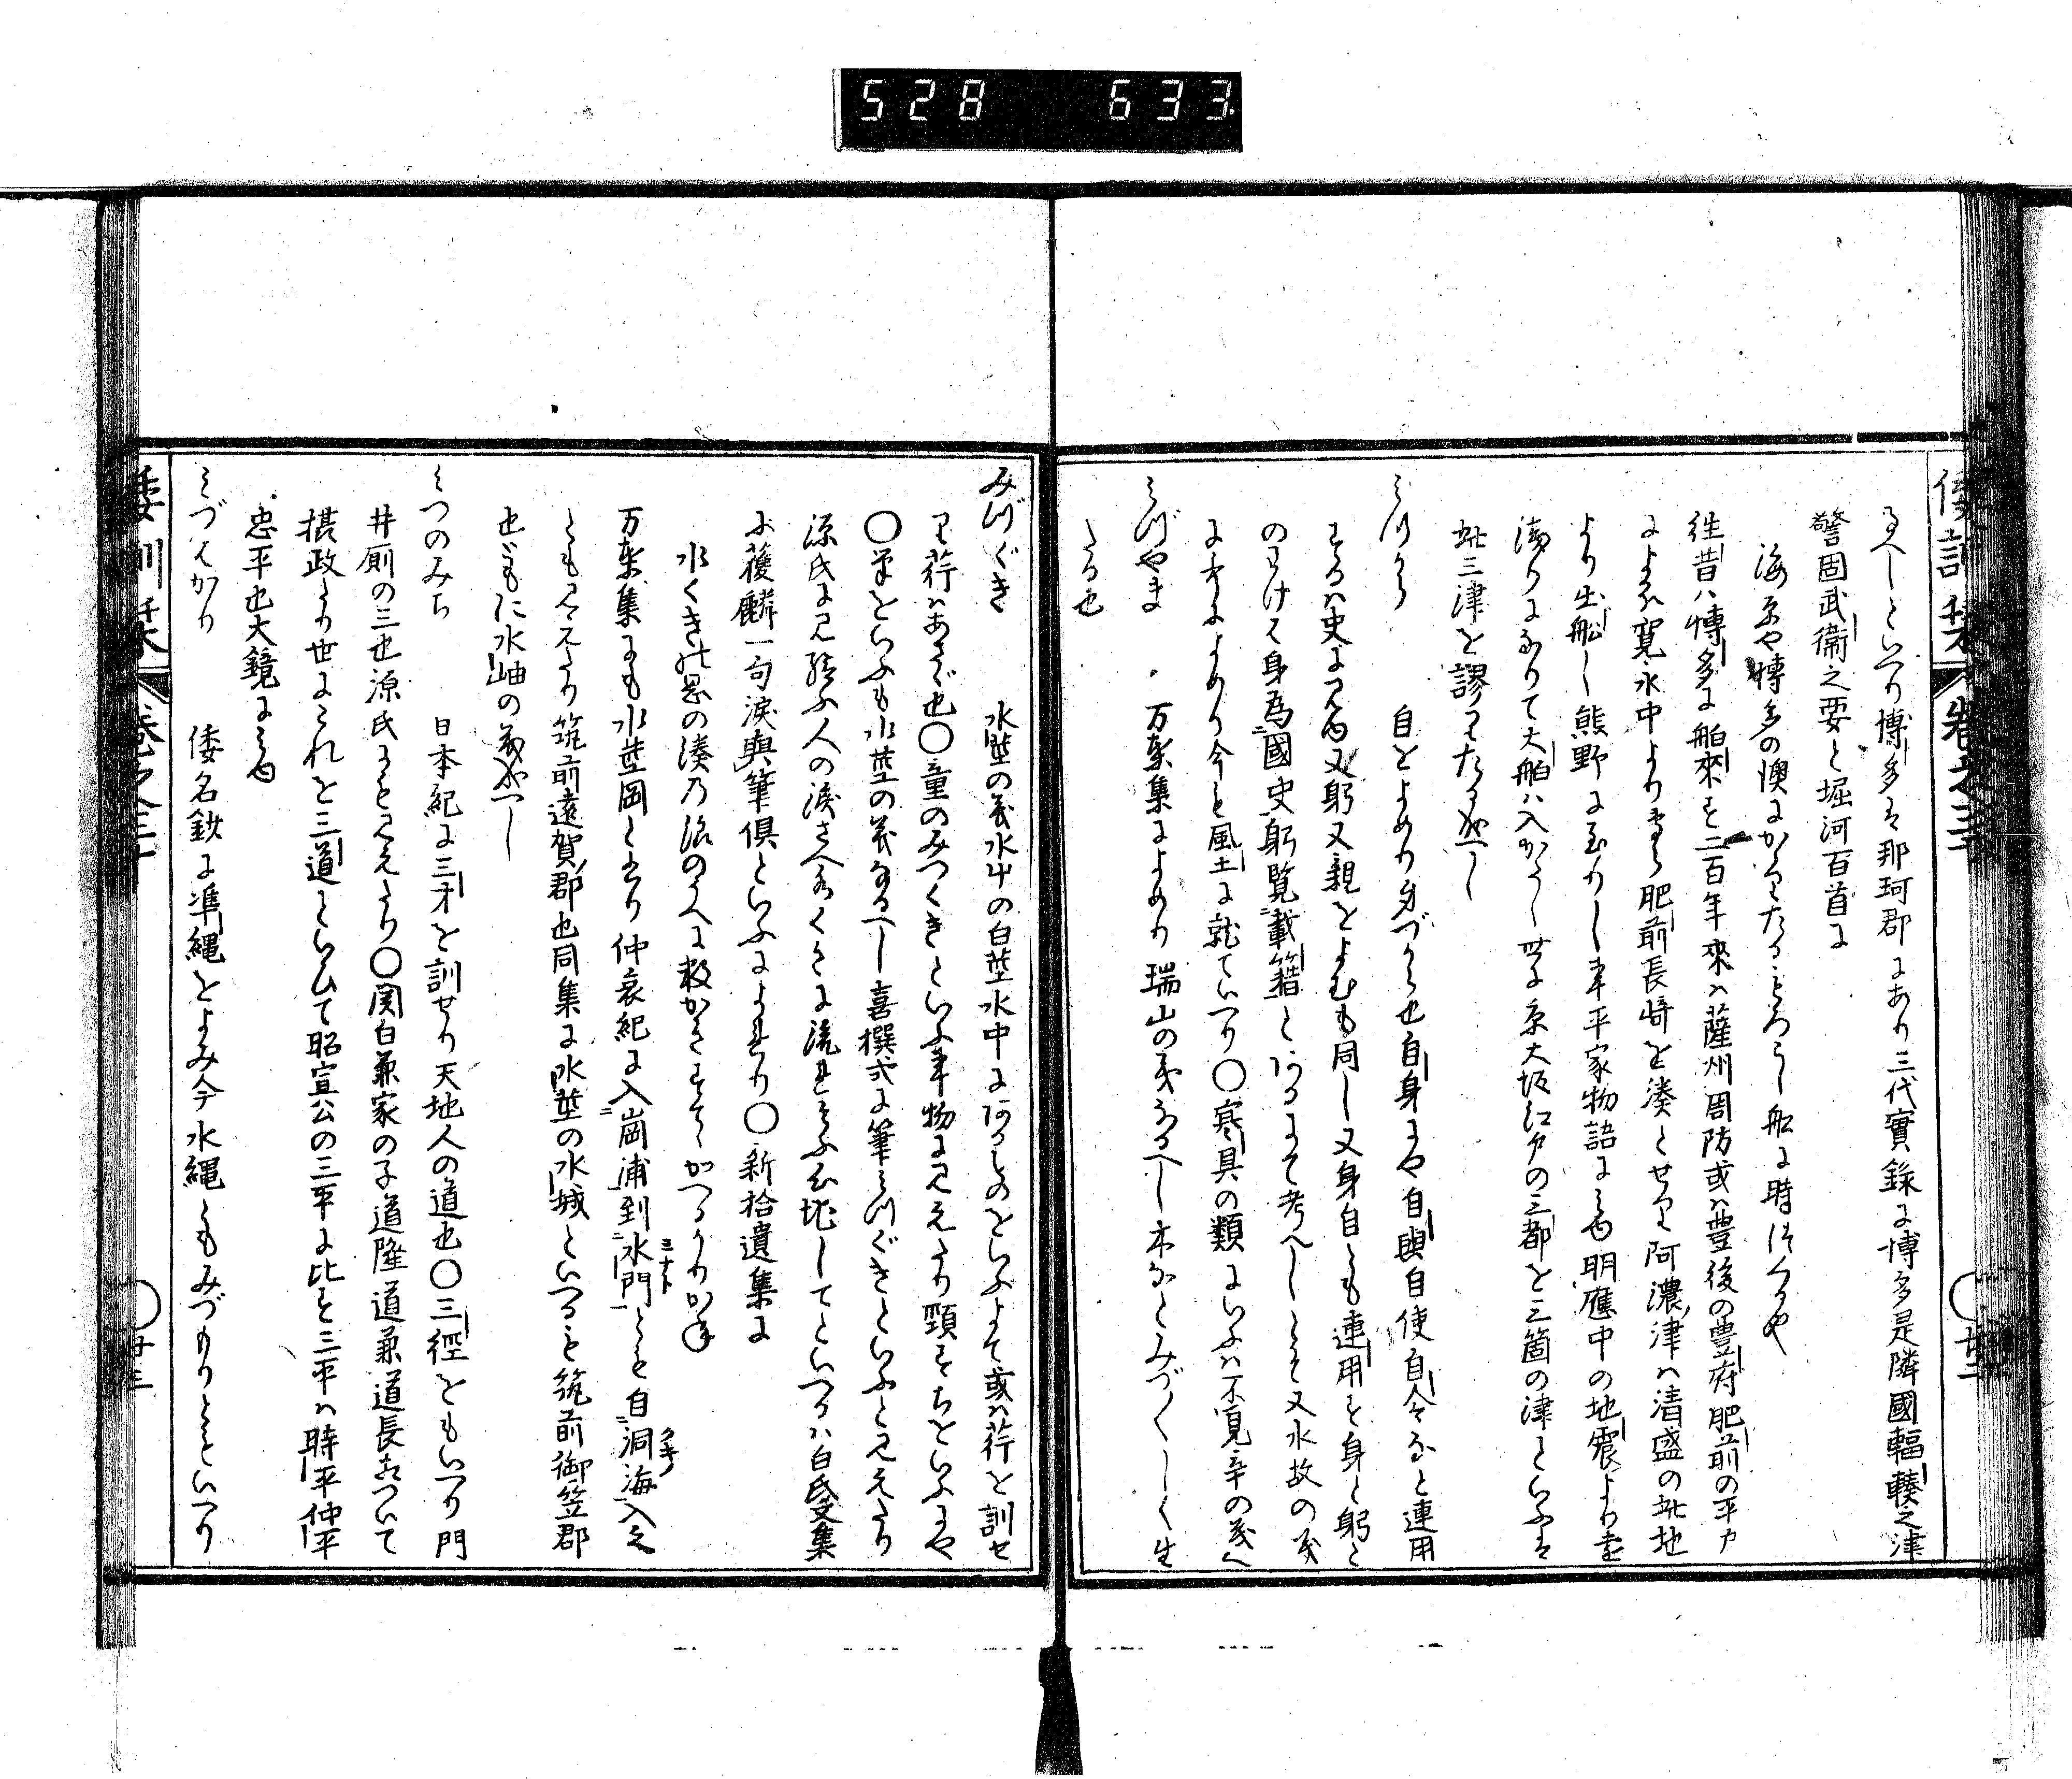 528 633
倭訓栞 卷之三十 廿二
るへしといへり博多は那珂郡にあり三代實録に博多是隣國輻輳之津
警固武衞之要と堀河百首に
海原や博多の澳にかゝりたるもろこし船に時はつくるや
往昔ハ博多に舶來す二百年來ハ薩州周防或ハ豊後の豊府肥前の平戸
によれハ寛永中より専ら肥前長崎を湊とせり阿濃津ハ清盛の此地
より出船し熊野に至りし事平家物語にみゆ明應中の地震より遠
淺りになりて大舶ハ入かたし世に京大坂江戸の三都を三箇の津といふは
此三津を謬りたるなるへし
みづから 自をよめり身づから也自身にや自與自使自令なと連用
せるハ史にみゆ又躬又親をよむも同し又身自とも連用す身と躬と
のわけは身為國史躬覽載籍とあるにて考へしとそ又水故の義
に歌によめり今も風土に就ていへり〇寒具の類にいふハ不見辛の義へ
たる也
みづやま 万葉集によめり瑞山の義なるへし木なとみづ〳〵しく生
みづぐき 水莖の義水中の白莖水中にあるものをいふよて或ハ荇を訓せ
り荇ハあさゞ也〇童のみつくきといふ事物にみえたり頸すちをいふにや
〇筆をいふも水莖の義なるへし喜撰式に筆みづぐきといふとみえたり
源氏にみ給ふ人の涙さへ水くきに流れそふ心地してといへるハ白氏文集
に獲麟一句涙與筆倶といふによれり〇新拾遺集に
水くきの岡の湊の浪のうへに数かきすてゝかへるかりかね
万葉集にも水莖岡とよめり仲哀紀に入岡浦到水門とも自洞海入之
ミナト クキノ
ともみえたり筑前遠賀郡也同集に水莖の水城といへるも筑前御笠郡
也ともに水岫の義なるへし
みつのみち 日本紀に三才を訓せり天地人の道也〇三徑をともいへり門
井厠の三也源氏にもみえたり〇関白兼家の子道隆道兼道長あひついて
摂政たり世にこれを三道といひて昭宣公の三平に比す三平ハ時平仲平
忠平也大鏡にみゆ
みづはかり 倭名鈔に準縄をよみ今水縄ともみづもりともいへり
倭訓栞 卷之三十 廿三